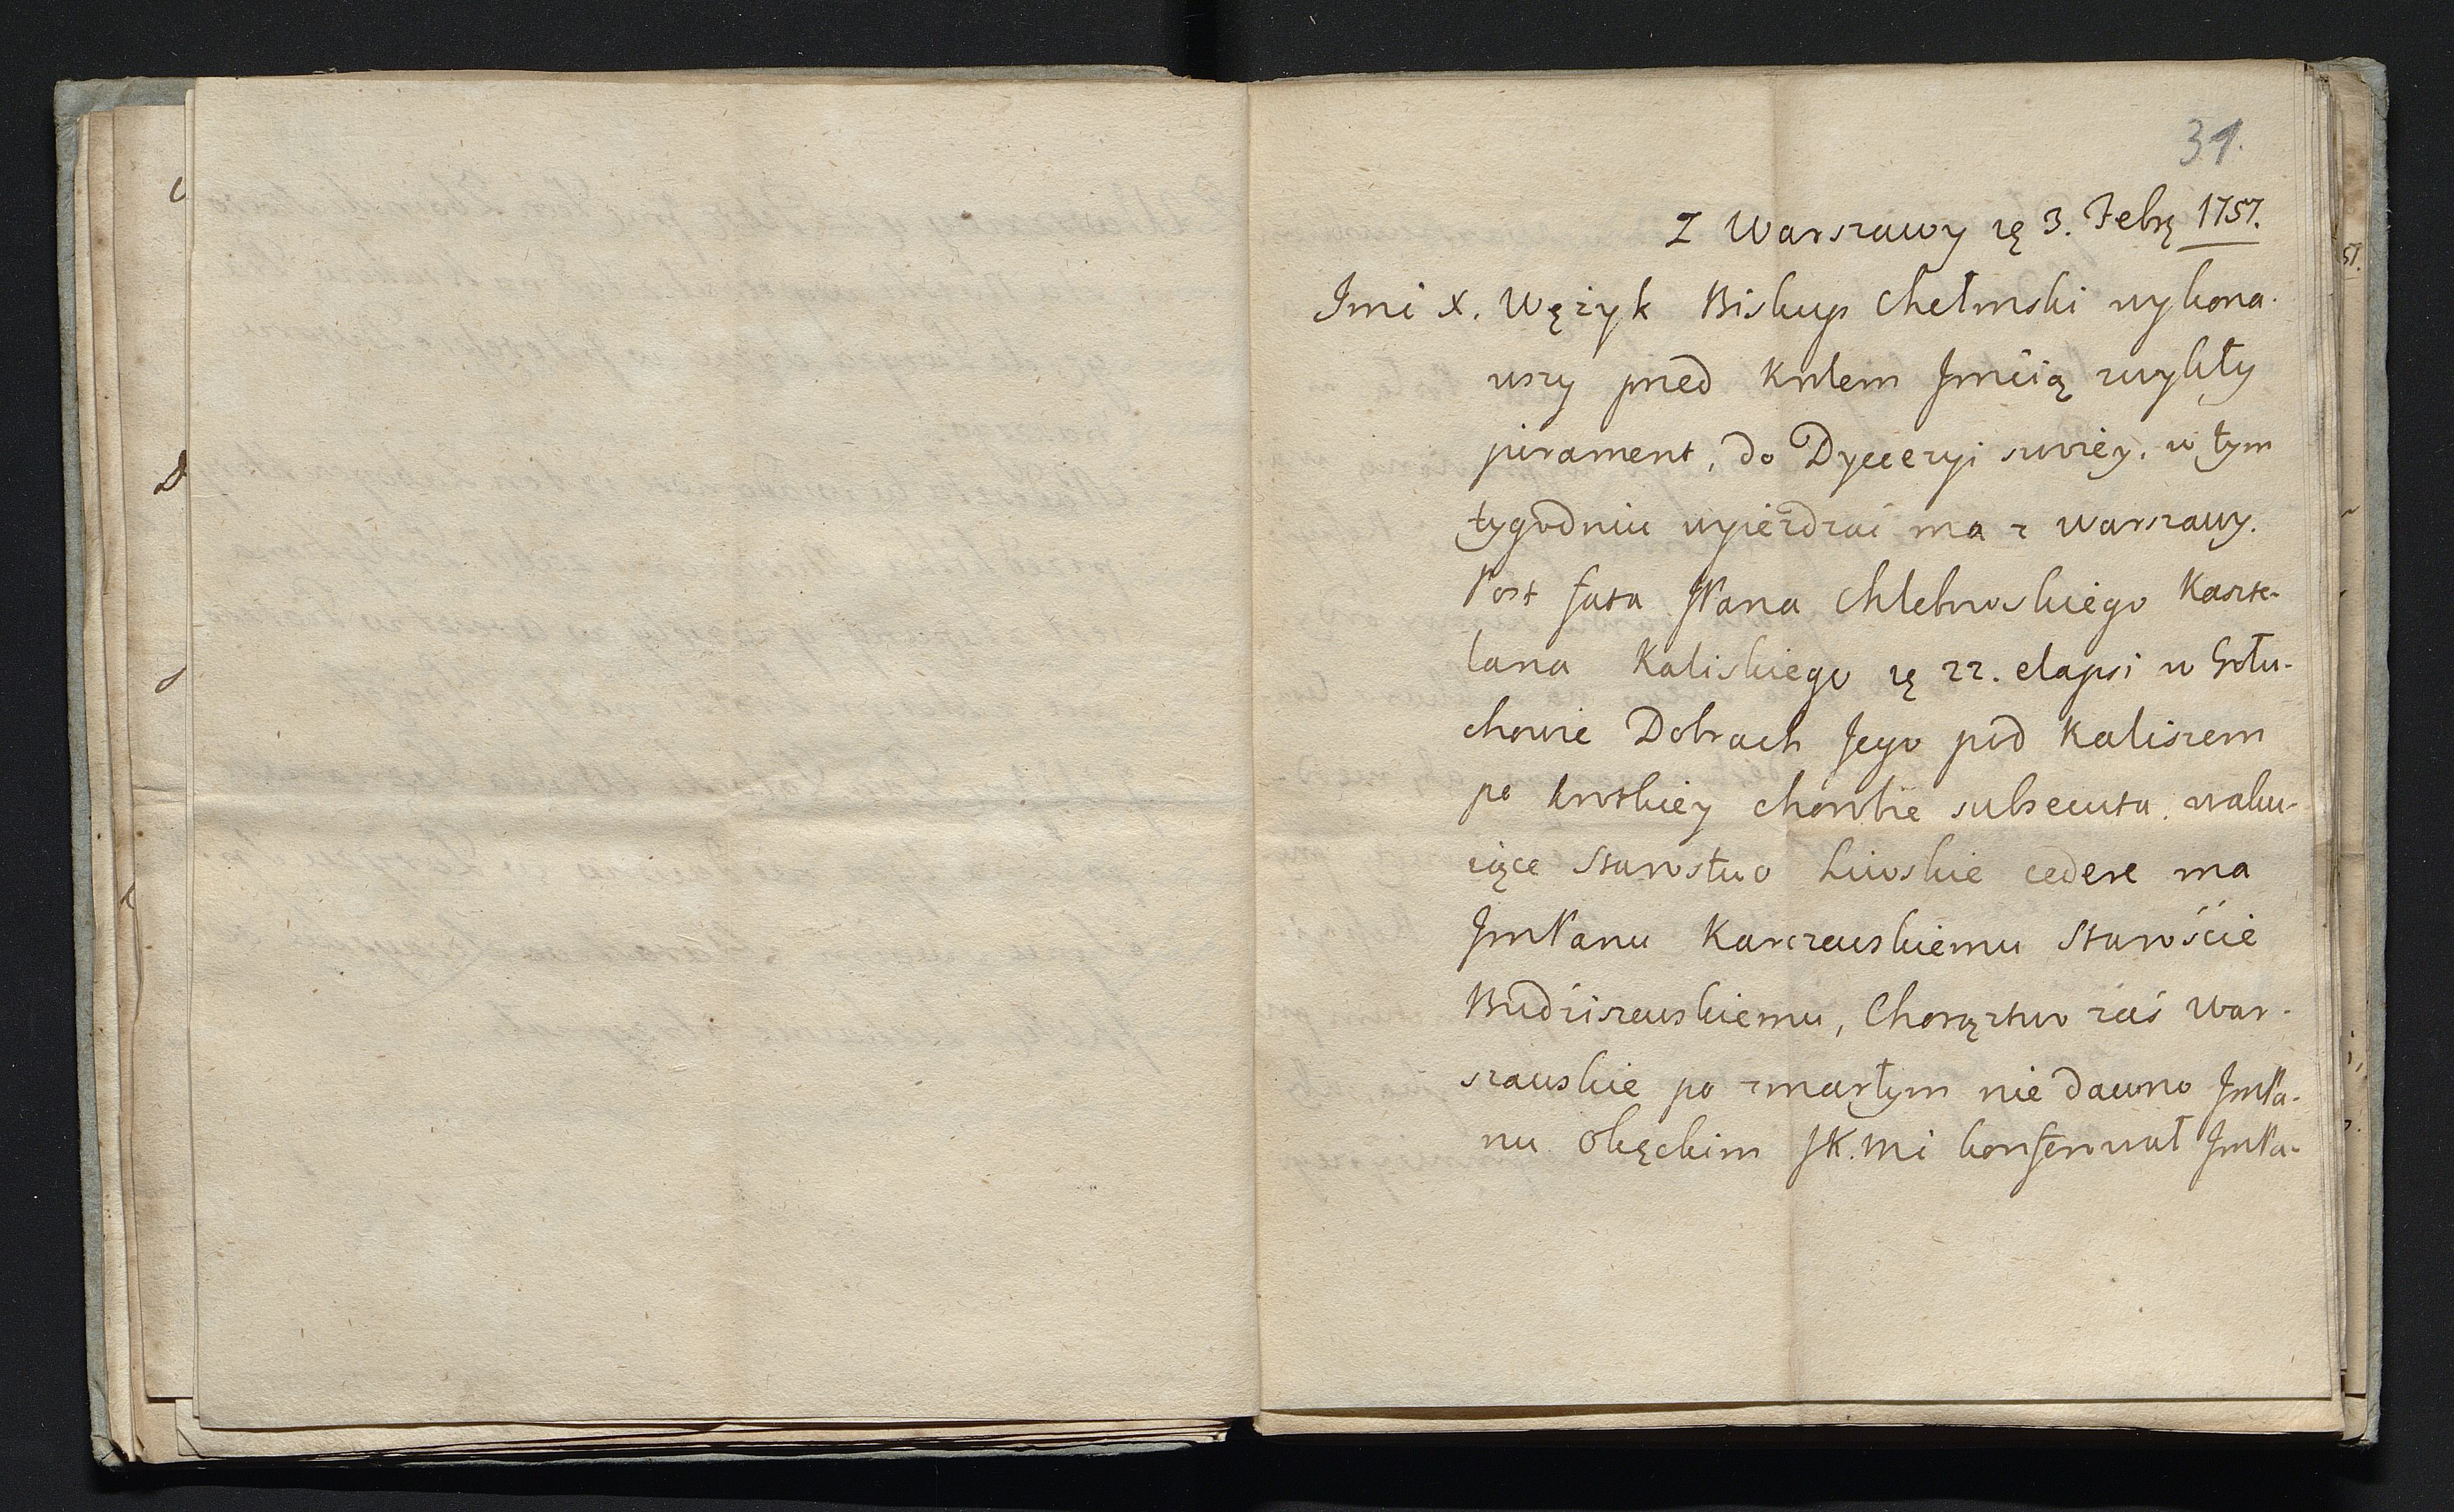 31.
Z Warszawy rę 3. Febrę 1757.
Imci X. Wężyk Biskup Chełmski wykona-
wszy przed Krolem Jmcią zwykły
jurament, do Dyecezyi swoiey. w tym
tygodniu wyieżdzać ma z Warszawy.
Post fata JPana Chlebowskiego Kaszte-
lana Kaliskiego rę 22. elapsi w Gołu-
chowie Dobrach Jego pod Kaliszem
po krotkiey chorobie subsecuta. waku-
iące Starostwo Liwskie cedere ma
JmPanu Karczewskiemu Starościе
Budziszewskiemu, Chorąztwo zaś War-
szawskie po zmarłym nie dawno JmPa-
nu Okęckim JK.Mć konferował JmPa-